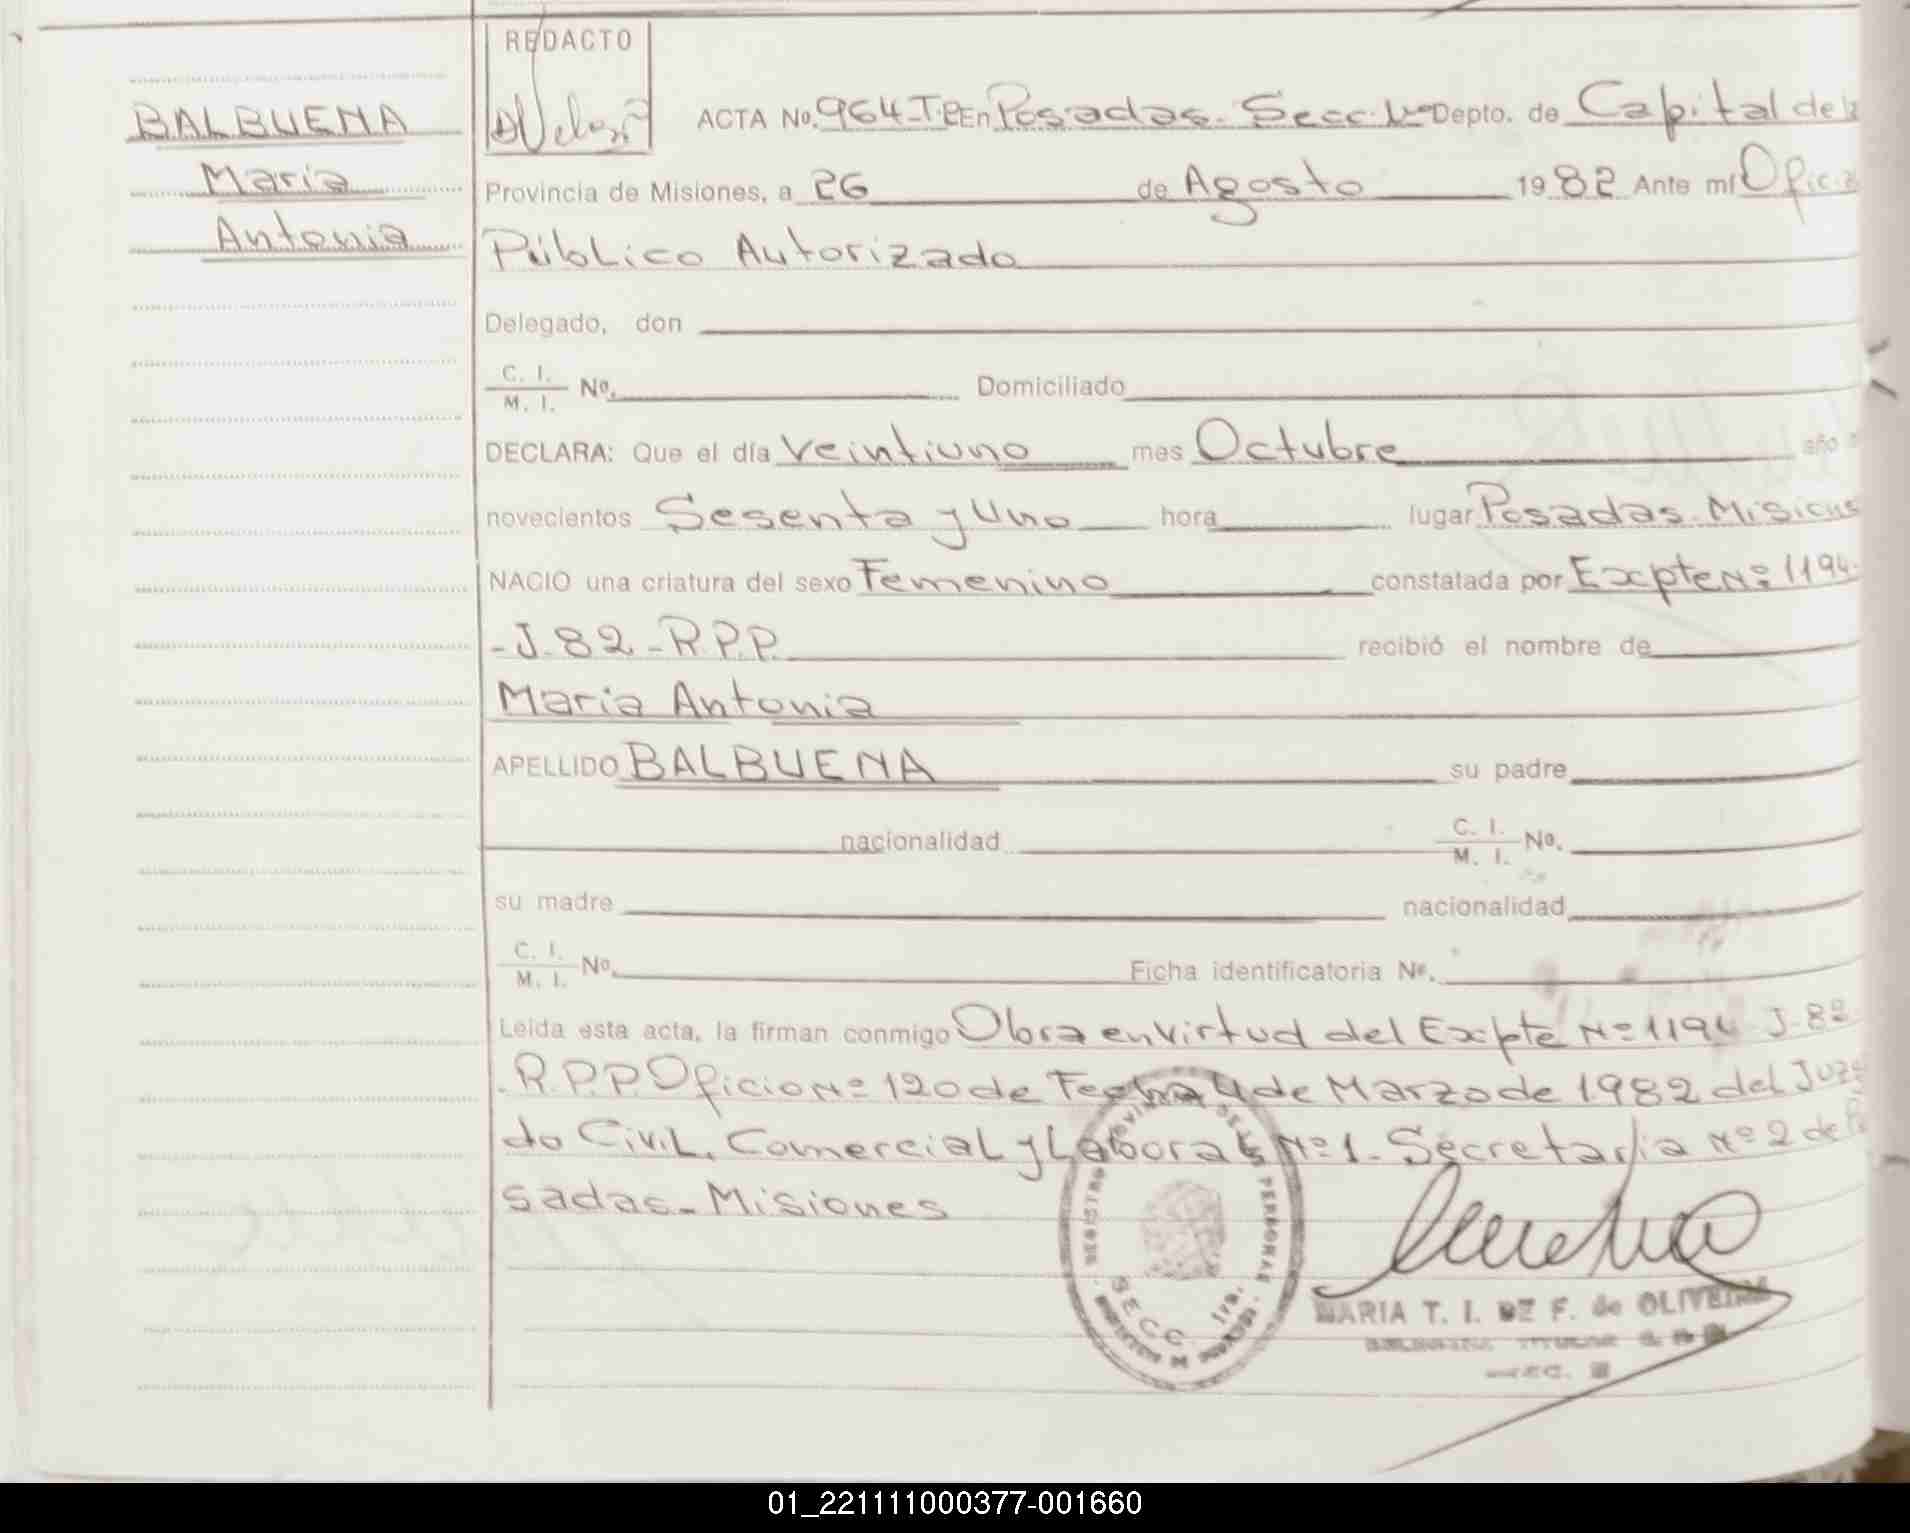 REDACTO
BALBUENA
Maria
Antonia
ACTA No. 964-T. En Posadas. Secc. 1ra Depto. de Capital de la
Provincia de Misiones, a 26 de Agosto 1982 Ante mí Oficial
Público Autorizado
Delegado, don
C. I. / M. I. No. Domiciliado
DECLARA: Que el día veintiuno mes Octubre año
novecientos Sesenta y Uno hora lugar Posadas. Misiones
NACIO una criatura del sexo Femenino constatada por Expte Nº 1194
-J.82-R.P.P. recibió el nombre de
Maria Antonia
APELLIDO BALBUENA su padre
nacionalidad C. I. / M. I. No.
su madre nacionalidad
C. I. / M. I. No. Ficha identificatoria Nº.
Leída esta acta, la firman conmigo Obra en virtud del Expte Nº 1194 J-82
R.P.P. Oficio Nº 120 de Fecha 4 de Marzo de 1982 del Juzga
do Civil, Comercial y Laboral Nº 1. Secretaria Nº 2 de Po
sadas-Misiones
REGISTRO PROVINCIAL DE LAS PERSONAS
SECC. 1ra.
MARIA T. I. DE F. de OLIVEIRA
01_221111000377-001660